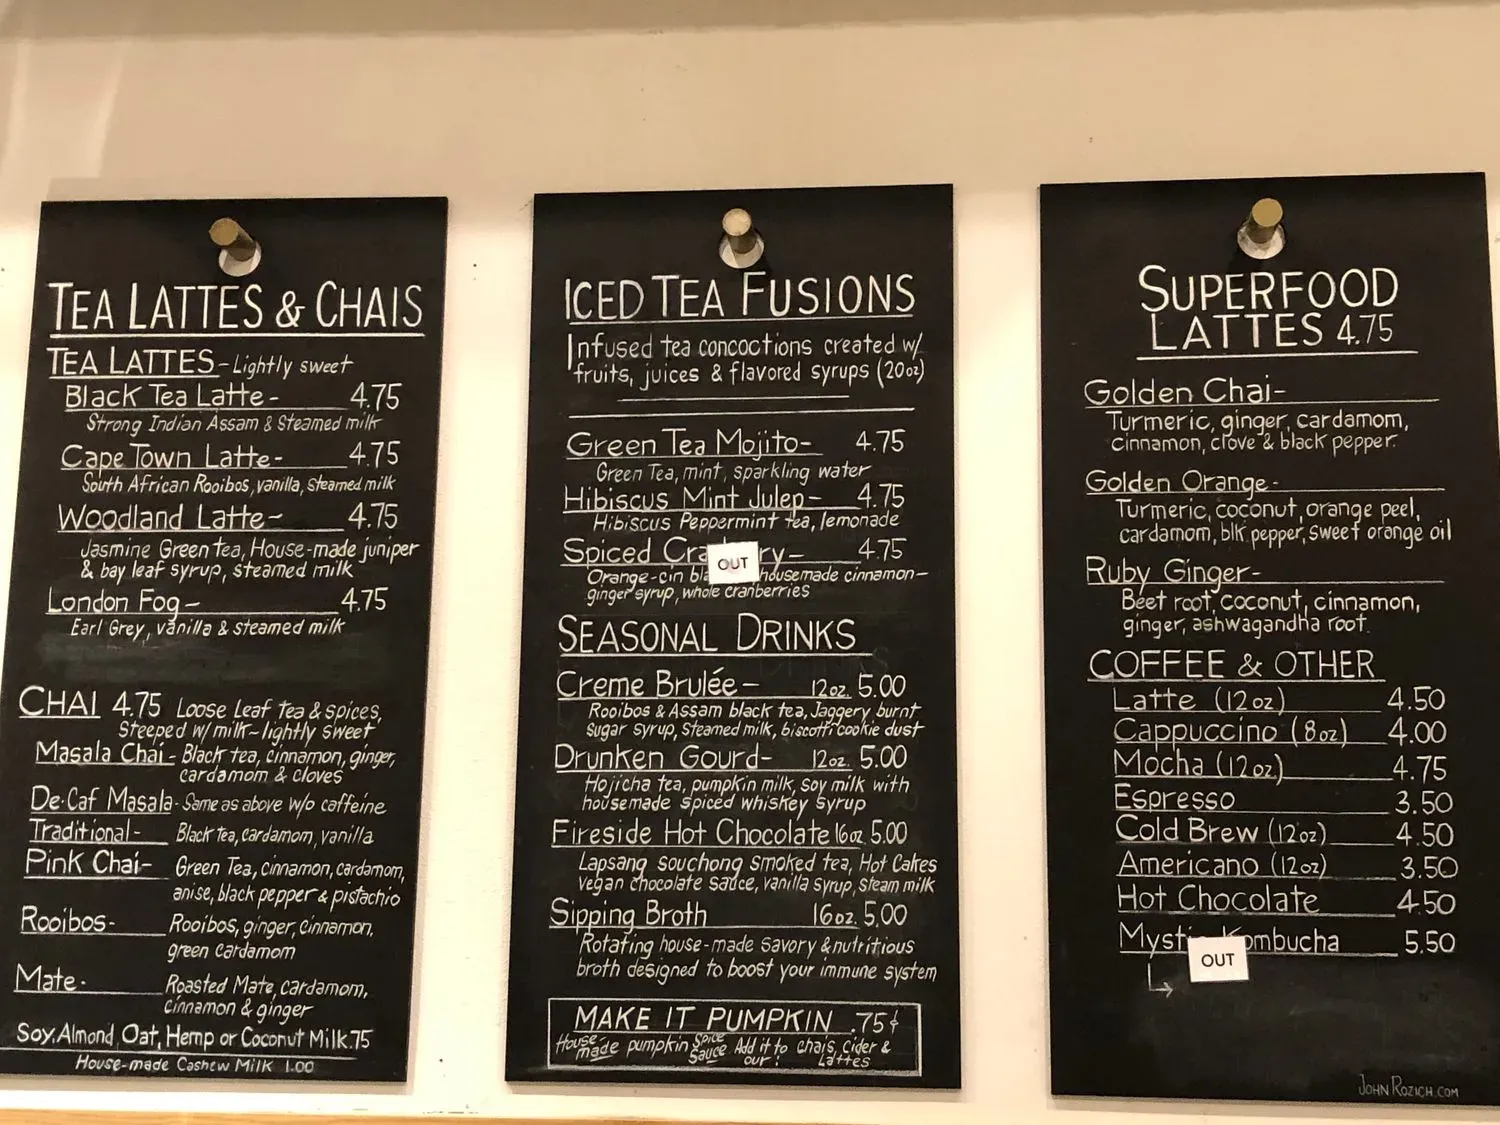 TEA LATTES & CHAIS
TEA LATTES - Lightly sweet
Black Tea Latte - 4.75
Strong Indian Assam & Steamed milk
Cape Town Latte - 4.75
South African Rooibos, vanilla, Steamed milk
Woodland Latte - 4.75
Jasmine Green tea, House-made juniper
& bay leaf syrup, steamed milk
London Fog - 4.75
Earl Grey, vanilla & steamed milk
CHAI 4.75 Loose Leaf tea & spices,
Steeped w/ milk - lightly sweet
Masala Chai - Black tea, cinnamon, ginger,
cardamom & cloves
De-Caf Masala - Same as above w/o caffeine
Traditional - Black tea, cardamom, vanilla
Pink Chai - Green Tea, cinnamon, cardamom,
anise, black pepper & pistachio
Rooibos - Rooibos, ginger, cinnamon,
green cardamom
Mate - Roasted Mate, cardamom,
cinnamon & ginger
Soy, Almond, Oat, Hemp or Coconut Milk .75
House-made Cashew Milk 1.00
ICED TEA FUSIONS
Infused tea concoctions created w/
fruits, juices & flavored syrups (20oz)
Green Tea Mojito - 4.75
Green Tea, mint, sparkling water
Hibiscus Mint Julep - 4.75
Hibiscus Peppermint tea, lemonade
Spiced Cra OUT ry - 4.75
Orange-cin bla housemade cinnamon-
ginger syrup, whole cranberries
SEASONAL DRINKS
Creme Brulée - 12oz. 5.00
Rooibos & Assam black tea, Jaggery burnt
sugar syrup, steamed milk, biscotti cookie dust
Drunken Gourd - 12oz. 5.00
Hojicha tea, pumpkin milk, soy milk with
housemade spiced whiskey syrup
Fireside Hot Chocolate 16oz 5.00
Lapsang souchong smoked tea, Hot Cakes
vegan chocolate sauce, vanilla syrup, steam milk
Sipping Broth 16oz. 5.00
Rotating house-made savory & nutritious
broth designed to boost your immune system
MAKE IT PUMPKIN .75¢
House made pumpkin spice sauce Add it to chais, cider &
our! Lattes
SUPERFOOD
LATTES 4.75
Golden Chai -
Turmeric, ginger, cardamom,
cinnamon, clove & black pepper.
Golden Orange -
Turmeric, coconut, orange peel,
cardamom, blk pepper, sweet orange oil
Ruby Ginger -
Beet root, coconut, cinnamon,
ginger, ashwagandha root.
COFFEE & OTHER
Latte (12oz) 4.50
Cappuccino (8oz) 4.00
Mocha (12oz) 4.75
Espresso 3.50
Cold Brew (12oz) 4.50
Americano (12oz) 3.50
Hot Chocolate 4.50
Mysti Kombucha 5.50
OUT
JOHN ROZICH.COM